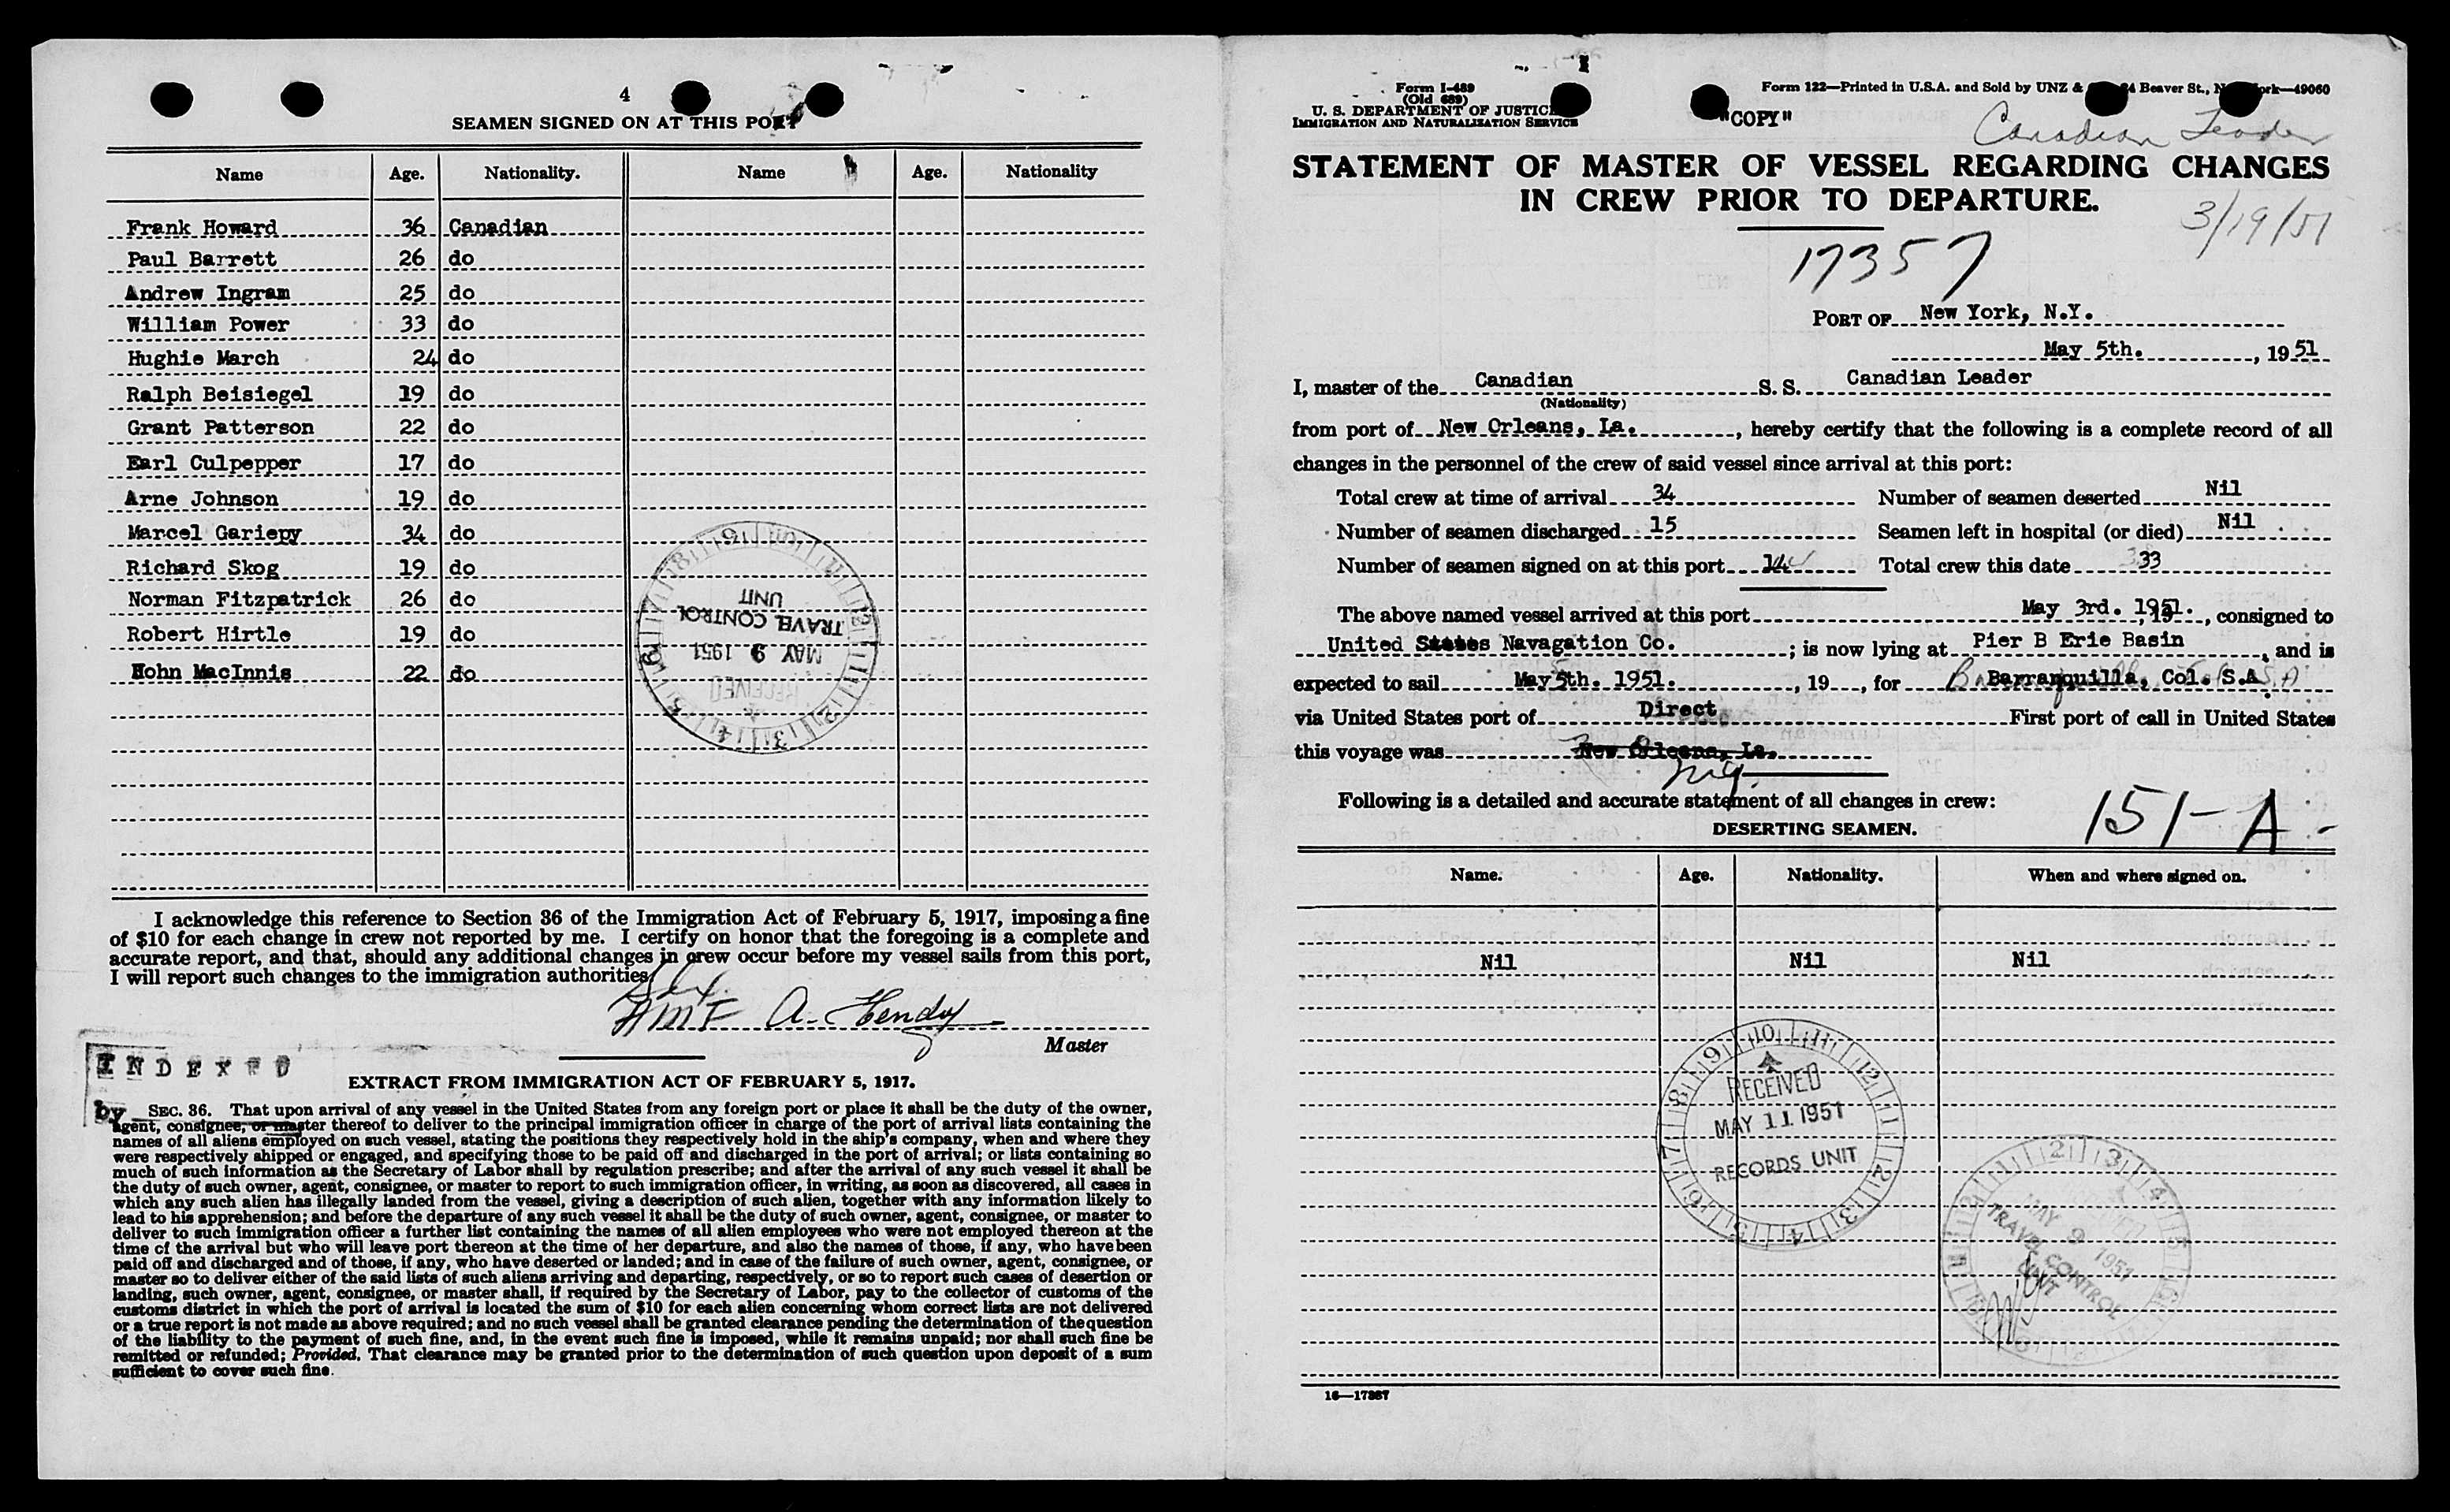 4
SEAMEN SIGNED ON AT THIS PORT
Name Age. Nationality. Name Age. Nationality
Frank Howard 36 Canadian
Paul Barrett 26 do
Andrew Ingram 25 do
William Power 33 do
Hughie March 24 do
Ralph Beisiegel 19 do
Grant Patterson 22 do
Earl Culpepper 17 do
Arne Johnson 19 do
Marcel Gariepy 34 do
Richard Skog 19 do
Norman Fitzpatrick 26 do
Robert Hirtle 19 do
Hohn MacInnis 22 do
RECEIVED
MAY 9 1951
TRAVEL CONTROL
UNIT
I acknowledge this reference to Section 36 of the Immigration Act of February 5, 1917, imposing a fine
of $10 for each change in crew not reported by me. I certify on honor that the foregoing is a complete and
accurate report, and that, should any additional changes in crew occur before my vessel sails from this port,
I will report such changes to the immigration authorities
A. Hendy
Master
INDEXED
by
EXTRACT FROM IMMIGRATION ACT OF FEBRUARY 5, 1917.
SEC. 36. That upon arrival of any vessel in the United States from any foreign port or place it shall be the duty of the owner,
agent, consignee, or master thereof to deliver to the principal immigration officer in charge of the port of arrival lists containing the
names of all aliens employed on such vessel, stating the positions they respectively hold in the ship's company, when and where they
were respectively shipped or engaged, and specifying those to be paid off and discharged in the port of arrival; or lists containing so
much of such information as the Secretary of Labor shall by regulation prescribe; and after the arrival of any such vessel it shall be
the duty of such owner, agent, consignee, or master to report to such immigration officer, in writing, as soon as discovered, all cases in
which any such alien has illegally landed from the vessel, giving a description of such alien, together with any information likely to
lead to his apprehension; and before the departure of any such vessel it shall be the duty of such owner, agent, consignee, or master to
deliver to such immigration officer a further list containing the names of all alien employees who were not employed thereon at the
time of the arrival but who will leave port thereon at the time of her departure, and also the names of those, if any, who have been
paid off and discharged and of those, if any, who have deserted or landed; and in case of the failure of such owner, agent, consignee, or
master so to deliver either of the said lists of such aliens arriving and departing, respectively, or so to report such cases of desertion or
landing, such owner, agent, consignee, or master shall, if required by the Secretary of Labor, pay to the collector of customs of the
customs district in which the port of arrival is located the sum of $10 for each alien concerning whom correct lists are not delivered
or a true report is not made as above required; and no such vessel shall be granted clearance pending the determination of the question
of the liability to the payment of such fine, and, in the event such fine is imposed, while it remains unpaid; nor shall such fine be
remitted or refunded; Provided, That clearance may be granted prior to the determination of such question upon deposit of a sum
sufficient to cover such fine.
Form I-489
(Old 689)
U. S. DEPARTMENT OF JUSTICE
IMMIGRATION AND NATURALIZATION SERVICE
"COPY"
Form 122—Printed in U.S.A. and Sold by UNZ & Beaver St., 49060
Canadian Leader
STATEMENT OF MASTER OF VESSEL REGARDING CHANGES
IN CREW PRIOR TO DEPARTURE.
3/19/51
17357
PORT OF New York, N.Y.
May 5th. , 1951
I, master of the Canadian S. S. Canadian Leader
(Nationality)
from port of New Orleans, La. , hereby certify that the following is a complete record of all
changes in the personnel of the crew of said vessel since arrival at this port:
Total crew at time of arrival 34 Number of seamen deserted Nil
Number of seamen discharged 15 Seamen left in hospital (or died) Nil
Number of seamen signed on at this port 14 Total crew this date 33
The above named vessel arrived at this port May 3rd. 1951. , 19 , consigned to
United States Navagation Co. ; is now lying at Pier B Erie Basin , and is
expected to sail May 5th. 1951. , 19 , for Barranquilla, Col. S.A.
via United States port of Direct First port of call in United States
this voyage was New Orleans, La.
Following is a detailed and accurate statement of all changes in crew:
151-A-
DESERTING SEAMEN.
Name. Age. Nationality. When and where signed on.
Nil Nil Nil
RECEIVED
MAY 11 1951
RECORDS UNIT
MAY 9 1951
TRAVEL CONTROL
UNIT
16—17387